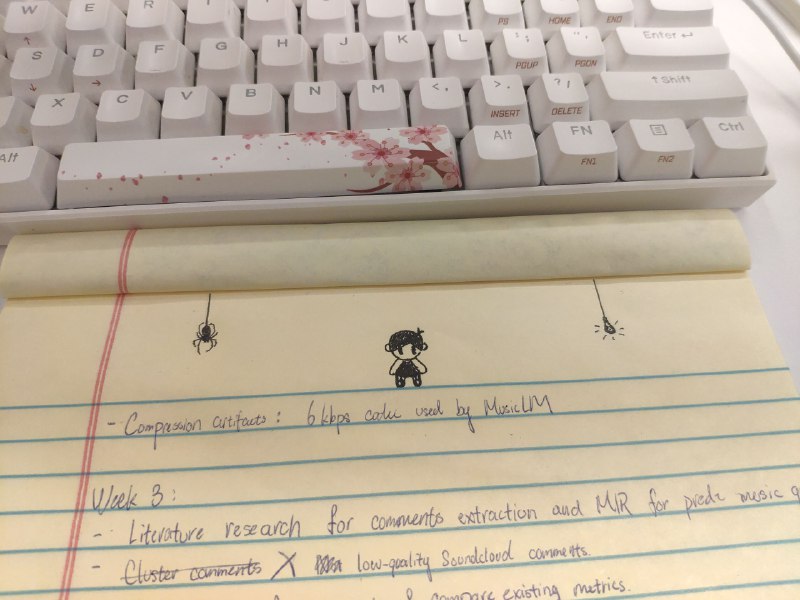 W E R PS HOME END
S D F G H J K L : ; " ' PGUP PGDN Enter ↵
X C V B N M < , > . INSERT ? / DELETE ↑ Shift
Alt Alt FN FN1 FN2 Ctrl
- Compression artifacts : 6 kbps codec used by MusicLM
Week 3 :
- Literature research for comments extraction and MIR for music
- Cluster comments X low-quality Soundcloud comments.
compare existing metrics.